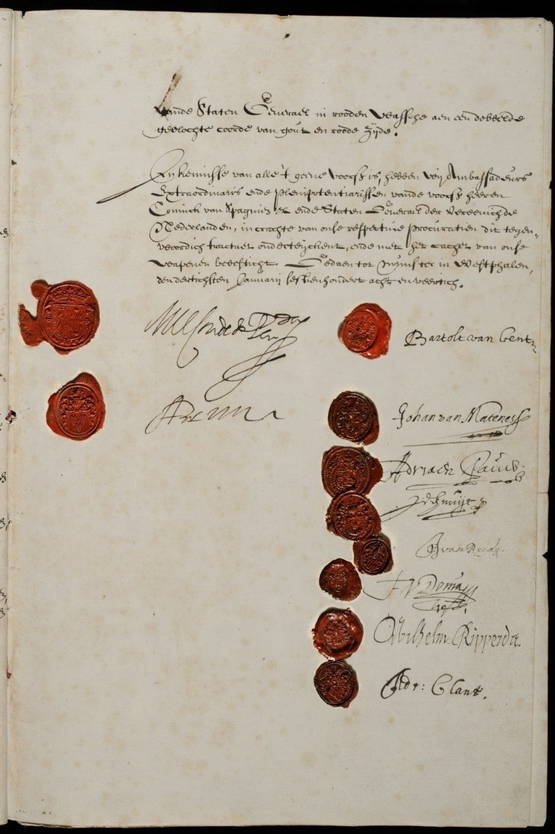 vande Staten Generael in rooden Wassche aen een dobbelde
gevlochte coorde van gout en roode zijde.
In kennisse van alle 't gene voorsz is, hebben wij Ambassadeurs
Extraordinairis ende plenipotentiarissen vande voorsz heeren
Coninck van Spagnien ende Staten Generael der Vereenichde
Nederlanden, in crachte van onse respective procuratien dit tegen,
woordich tractaet onderteijckent, ende met het cachet van onse
Wapenen bevesticht. Gedaen tot Munster in Westphalen,
den dertichsten Januarij sesthienhondert acht en veertich.
Bartolt van Gent
Johan van Matenesse
Adriaen Pauw
J. de Knuyt
F V Donia
Wilhelm Ripperda.
Adr: Clant.